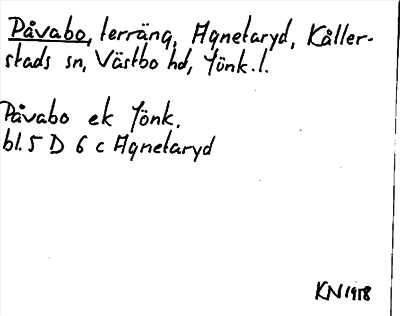 Påvabo, terräng, Agnetaryd, Kåller-
stads sn, Västbo hd, Jönk. l.
Påvabo ek Jönk.
bl. 5 D 6 c Agnetaryd
KN 1958